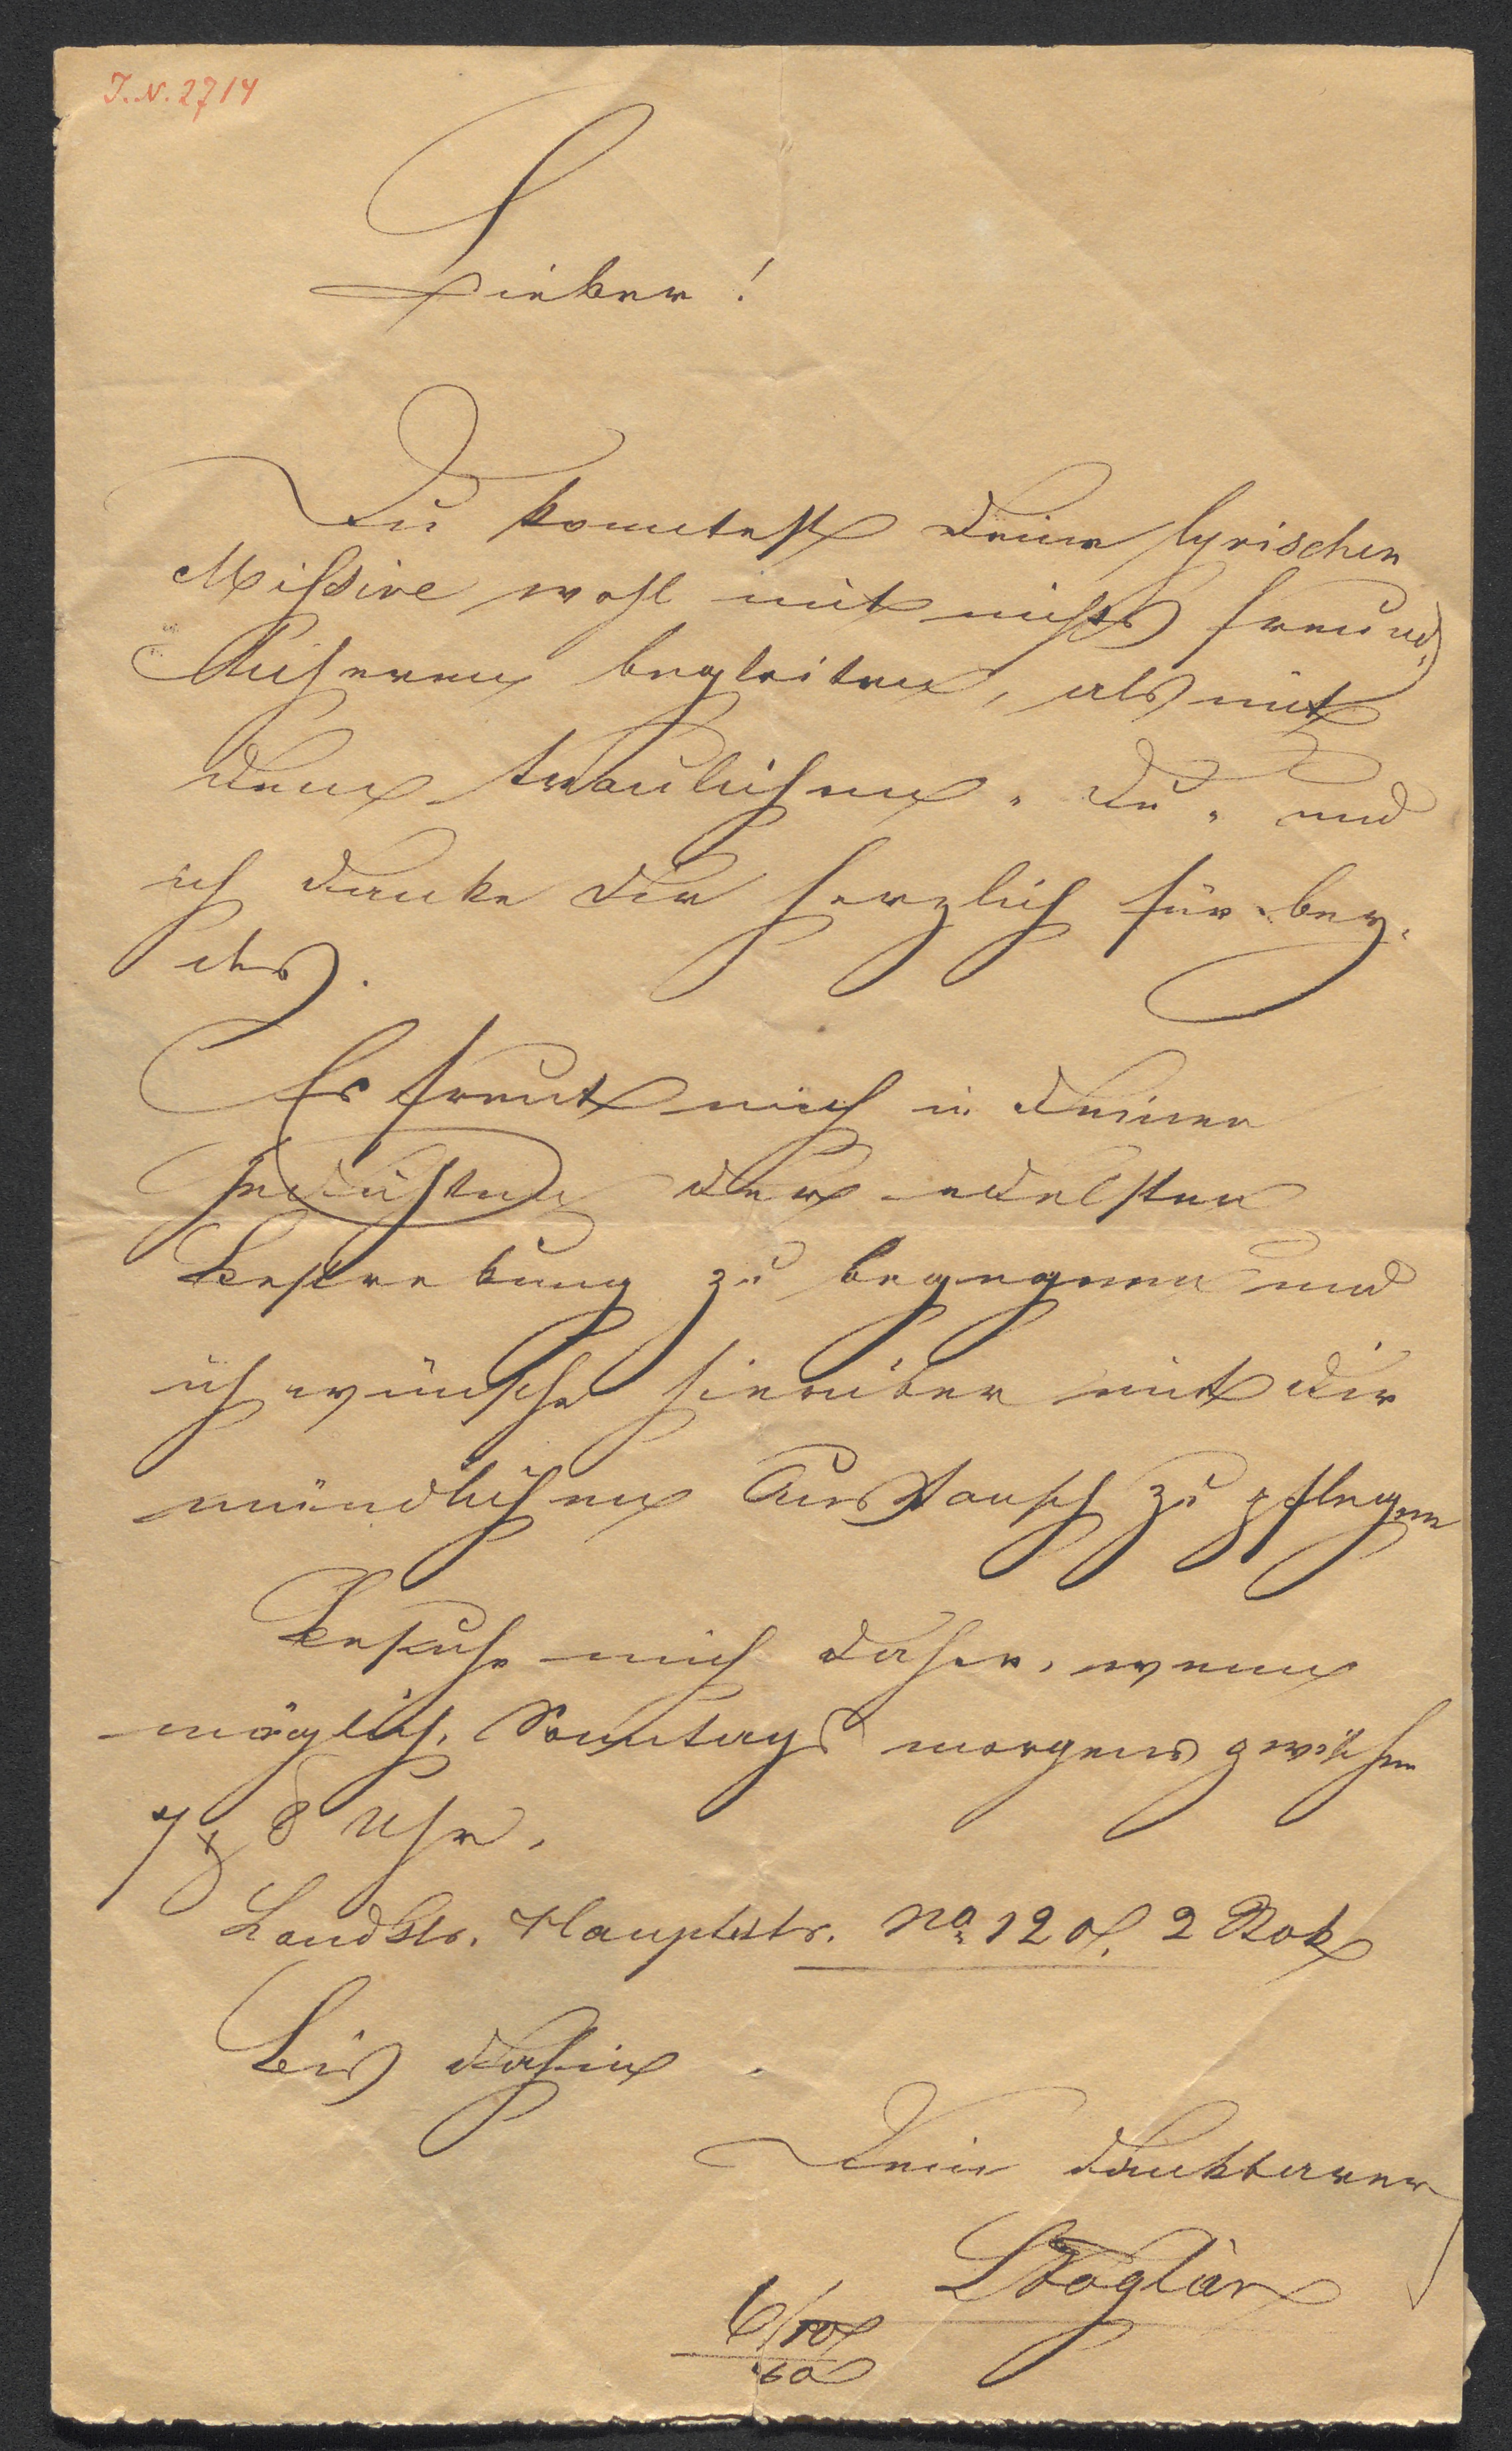 I.N. 2714
Lieber!
Du konntest deine lyrischen
Missive wohl mit nichts freund-
licherem begleiten, als mit
dem traulichen „Du“ und
ich danke dir herzlich für bey-
des.
Es freut mich in deinen
Gedichten der edelsten
Bestrebung zu begegnen und
ich wünsche hierüber mit dir
mündlichen Austausch zu pflegen
Besuche mich daher, wenn
möglich, Sonntags morgens zwischen
7 & 8 Uhr.
Landstr. Hauptstr. No 120, 2 Stok
Bis dahin
Dein dankbarer
LFoglár
6/10
60